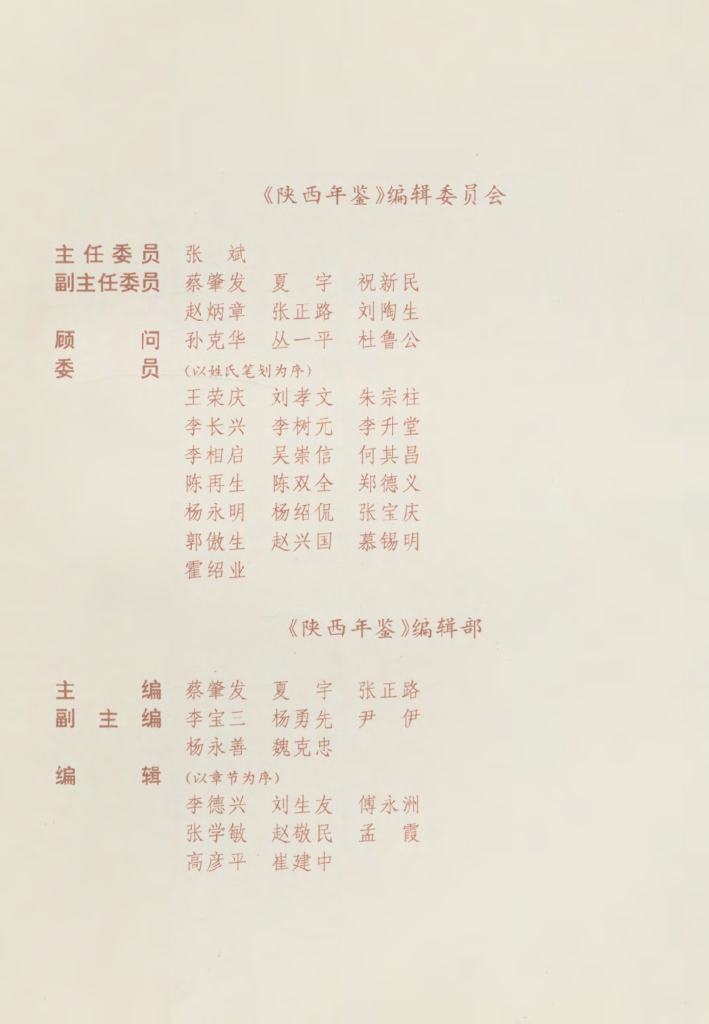 《陕西年鉴》编辑委员会
主任委员 张 斌
副主任委员 蔡肇发 夏 宇 祝新民
赵炳章 张正路 刘陶生
顾 问 孙克华 丛一平 杜鲁公
委 员 (以姓氏笔划为序)
王荣庆 刘孝文 朱宗柱
李长兴 李树元 李升堂
李相启 吴崇信 何其昌
陈再生 陈双全 郑德义
杨永明 杨绍侃 张宝庆
郭傲生 赵兴国 慕锡明
霍绍业
《陕西年鉴》编辑部
主 编 蔡肇发 夏 宇 张正路
副 主 编 李宝三 杨勇先 尹 伊
杨永善 魏克忠
编 辑 (以章节为序)
李德兴 刘生友 傅永洲
张学敏 赵敬民 孟 霞
高彦平 崔建中